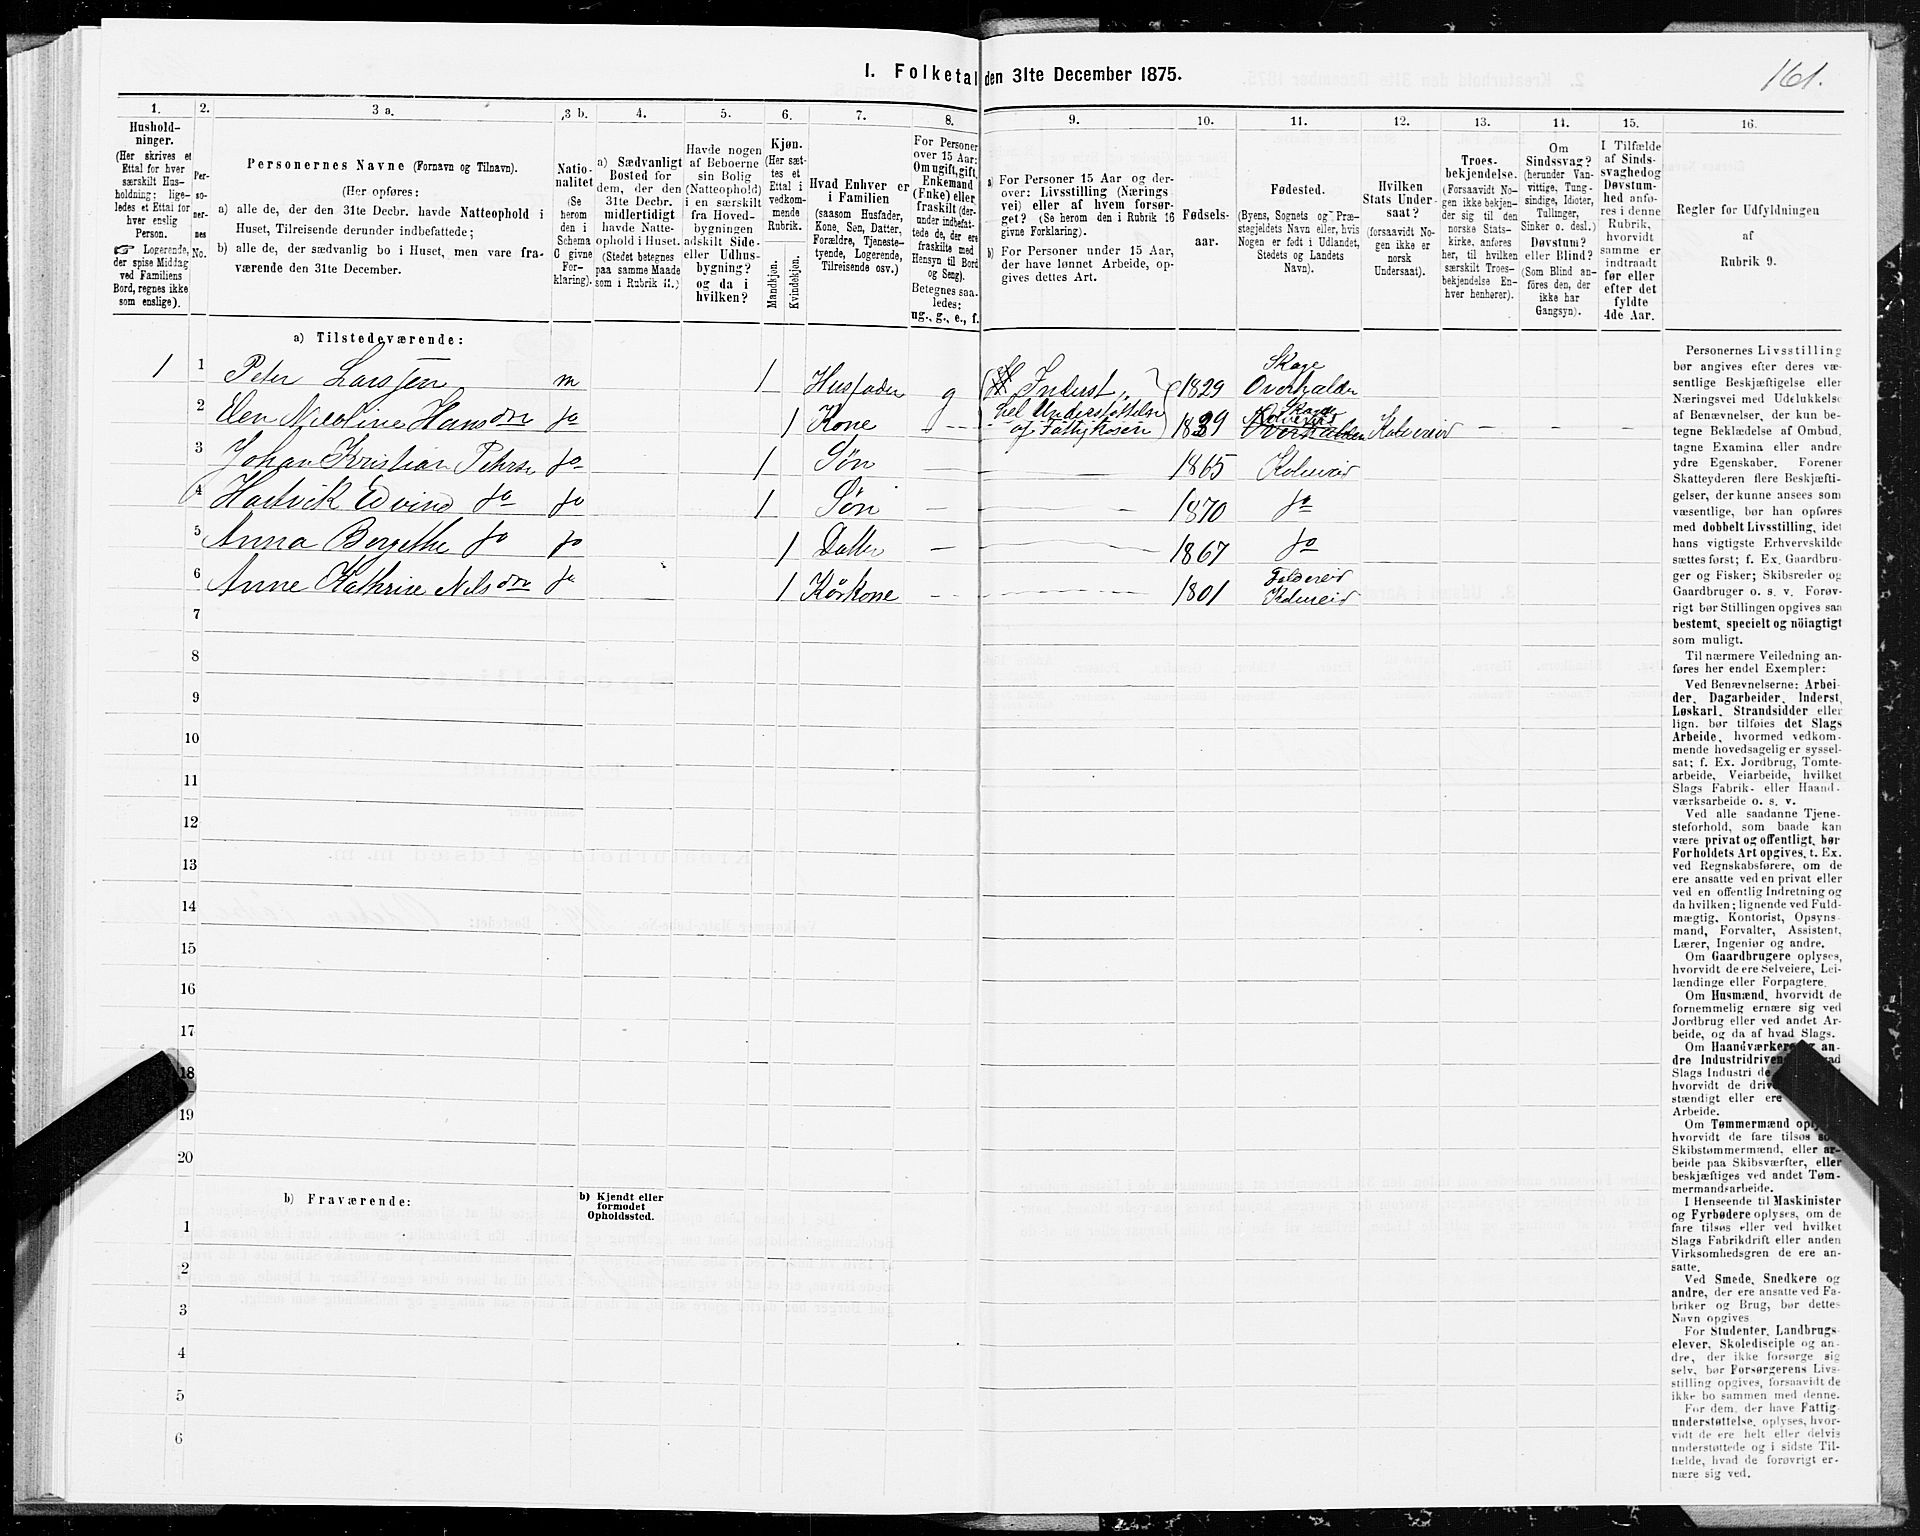 I. Folketal den 31te December 1875.
161.
1.
Hushold-
ninger.
(Her skrives et
Ettal for hver
særskilt Hus-
holdning; lige-
ledes et Ettal for
hver enslig
Person.
☞ Logerende,
der spise Middag
ved Familiens
Bord, regnes ikke
som enslige).
2.
Per-
so-
ner-
nes
No.
3 a.
Personernes Navne (Fornavn og Tilnavn).
(Her opføres:
a) alle de, der den 31te Decbr. havde Natteophold i
Huset, Tilreisende derunder indbefattede;
b) alle de, der sædvanlig bo i Huset, men vare fra-
værende den 31te December.
3 b.
Natio-
nalitet
(Se
herom
den i
Schema
C givne
For-
klaring).
4.
a) Sædvanligt
Bosted for
dem, der den
31te Decbr.
midlertidigt
havde Natte-
ophold i Huset.
(Stedet betegnes
paa samme Maade
som i Rubrik 11.)
5.
Havde nogen
af Beboerne
sin Bolig
(Natteophold)
i en særskilt
fra Hoved-
bygningen
adskilt Side-
eller Udhus-
bygning?
og da i
hvilken?
6.
Kjøn.
(Her sæt-
tes et
Ettal i
vedkom-
mende
Rubrik.
Mandkjøn.
Kvindekjøn.
7.
Hvad Enhver er
i Familien
(saasom Husfader,
Kone, Søn, Datter,
Forældre, Tjeneste-
tyende, Logerende,
Tilreisende osv.)
8.
For Personer
over 15 Aar:
Om ugift, gift,
Enkemand
(Enke) eller
fraskilt (der-
under indbefat-
tede de, der ere
fraskilte med
Hensyn til Bord
og Seng).
Betegnes saa-
ledes:
ug., g., e., f.
9.
a) For Personer 15 Aar og der-
over: Livsstilling (Nærings
vei) eller af hvem forsør-
get? (Se herom den i Rubrik 16
givne Forklaring).
b) For Personer under 15 Aar,
der have lønnet Arbeide, op-
gives dettes Art.
10.
Fødsels-
aar.
11.
Fødested.
(Byens, Sognets og Præ-
stegjeldets Navn eller, hvis
Nogen er født i Udlandet,
Stedets og Landets
Navn).
12.
Hvilken
Stats Under-
saat?
(forsaavidt No-
gen ikke er
norsk
Undersaat).
13.
Troes-
bekjendelse.
(Forsaavidt No-
gen ikke bekjen-
der sig til den
norske Stats-
kirke. anføres
her, til hvilken
særskilt Troes-
bekjendelse En-
hver henhører).
14.
Om
Sindssvag?
(herunder Van-
vittige, Tung-
sindige, Idioter,
Tullinger,
Sinker o. desl.)
Døvstum?
eller Blind?
(Som Blind an-
føres den, der
ikke har
Gangsyn).
15.
I Tilfælde
af Sinds-
svaghed og
Døvstum-
hed anfø-
res i denne
Rubrik,
hvorvidt
samme er
indtraadt
før eller
efter det
fyldte
4de Aar.
16.
Regler for Udfyldningen
af
Rubrik 9.
a) Tilstedeværende:
1 1 Peter Larssen m 1 Husfader g Inderst 1829 Skage Overhalden
2 Elen Nicoline Hansdtr do 1 Kone - - Understøttelse af Fattigkasen 1839 Overhalden Kolvereid - - -
3 Johan Kristian Peters do 1 Søn 1865 Kolvereid
4 Hartvik Edvind do do 1 Søn - 1870 do
5 Anna Bergethe do do 1 Datter - 1867 do
6 Anne Kathrine Nilsdtr do 1 Kårkone - 1801 Foldereid Kolvereid
7
8
9
10
11
12
13
14
15
16
17
18
19
20
b) Fraværende:
b) Kjendt eller
formodet
Opholdssted.
1
2
3
4
5
6
Personernes Livsstilling
bør angives efter deres væ-
sentlige Beskjæftigelse eller
Næringsvei med Udelukkelse
af Benævnelser, der kun be-
tegne Beklædelse af Ombud,
tagne Examina eller andre
ydre Egenskaber. Forener
Skatteyderen flere Beskjæfti-
gelser, der kunne ansees som
væsentlige, bør han opføres
med dobbelt Livsstilling, idet
hans vigtigste Erhvervskilde
sættes først; f. Ex. Gaardbru-
ger og Fisker; Skibsreder og
Gaardbruger o. s. v. Forøv-
rigt bør Stillingen opgives saa
bestemt, specielt og nöiagtigt
som muligt.
Til nærmere Veiledning an-
føres her endel Exempler:
Ved Benævnelserne: Arbei-
der, Dagarbeider, Inderst,
Løskarl, Strandsidder eller
lign. bør tilføies det Slags
Arbeide, hvormed vedkom-
mende hovedsagelig er syssel-
sat; f. Ex. Jordbrug, Tomte-
arbeide, Veiarbeide, hvilket
Slags Fabrik- eller Haand-
værksarbeide o. s. v.
Ved alle saadanne Tjene-
steforhold, som baade kan
være privat og offentligt, bør
Forholdets Art opgives, t. Ex.
ved Regnskabsførere, om de
ere ansatte ved en privat eller
ved en offentlig Indretning og
da hvilken; lignende ved Fuld-
mægtig, Kontorist, Opsyns-
mand, Forvalter, Assistent,
Lærer, Ingeniør og andre.
Om Gaardbrugere oplyses,
hvorvidt de ere Selveiere, Lei-
lændinge eller Forpagtere.
Om Husmænd, hvorvidt de
fornemmelig ernære sig ved
Jordbrug eller ved andet Ar-
beide, og da af hvad Slags.
Om Haandværkere og an-
dre Industridrivende
Slags Industri de
hvorvidt de
stændigt eller ere
Arbeide.
Om Tømmermænd oplyses
hvorvidt de fare tilsøs som
Skibstømmermænd, eller ar-
beide paa Skibsværfter, eller
beskjæftiges ved andet Tøm-
mermandsarbeide.
I Henseende til Maskinister
og Fyrbødere oplyses, om de
fare tilsøs eller ved hvilket
Slags Fabrikdrift eller anden
Virksomhedsgren de ere an-
satte.
Ved Smede, Snedkere og
andre, der ere ansatte ved Fa-
briker og Brug, bør dettes
Navn opgives
For Studenter, Landbrugs-
elever, Skoledisciple og an-
dre, der ikke forsørge sig
selv, bør Forsørgerens Livs-
stilling opgives, forsaavidt de
ikke bo sammen med denne.
For dem, der have Fattig-
understøttelse, oplyses, hvor-
vidt de ere helt eller delvis
understøttede og i sidste Til-
fælde, hvad de forøvrigt er-
nære sig ved.